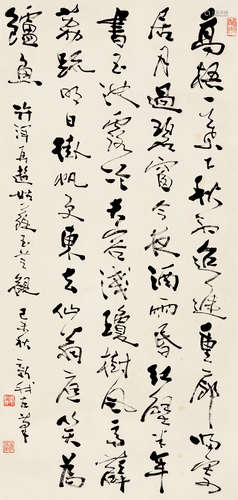 高梧一葉下秋初迢遞重廊寄
居月過碧窗今夜酒雨昏紅壁去年
書玉池露冷芙蓉淺瓊樹風高薜
荔疏明日掛帆更東去仙翁應笑為
鱸魚 許渾再遊姑蘇玉芝觀 己未秋 新我左筆